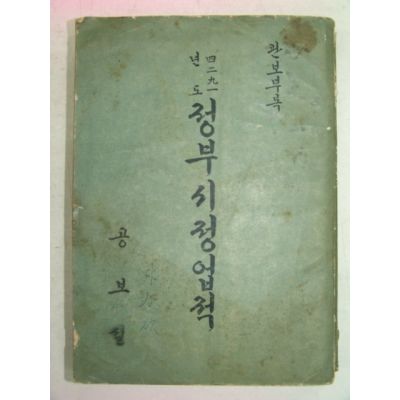 관보부록
四二九一
년도
정부시정업적
공보실